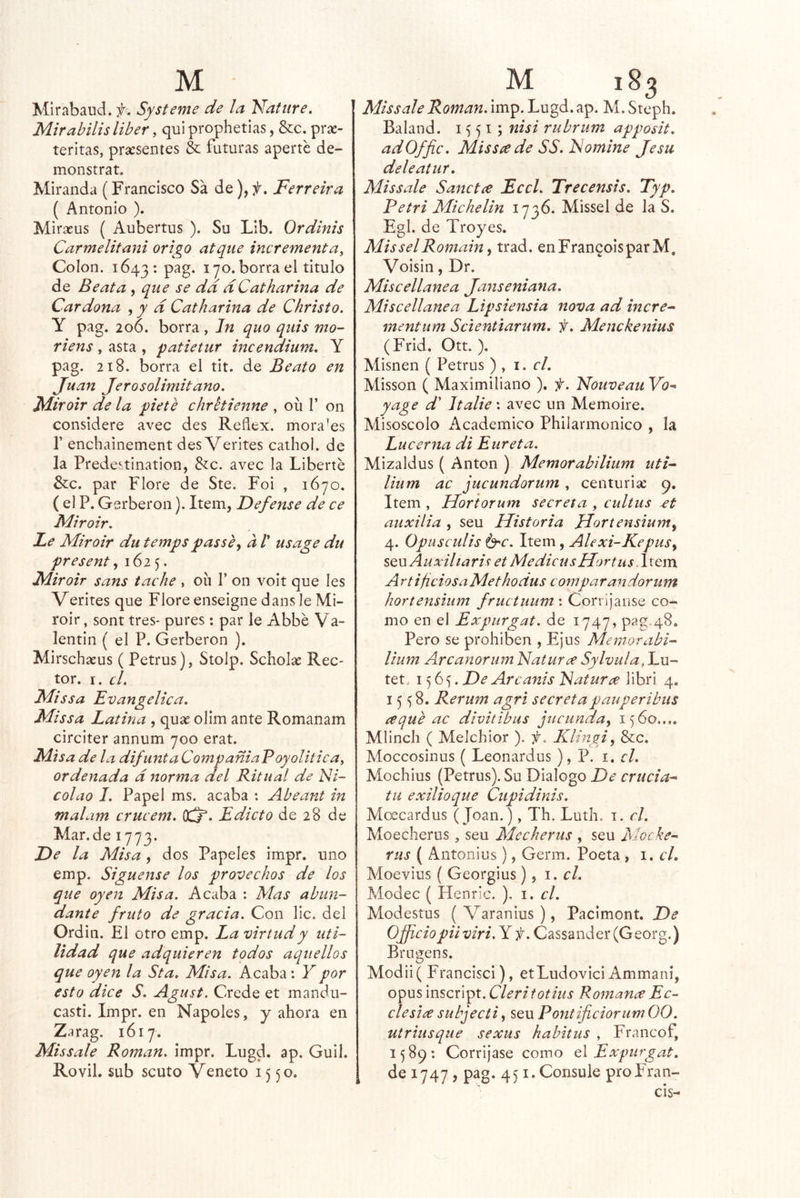 M
Mirabaud. ỳ. Systeme de la Nature.
Mirabilis liber, qui prophetias, &c. præ-
teritas, præsentes & futuras apertè de-
monstrat.
Miranda (Francisco Sà de), ỳ. Ferreira
( Antonio ).
Miræus ( Aubertus ). Su Lib. Ordinis
Carmelitani origo atque incrementa,
Colon. 1643: pag. 170. borra el titulo
de Beata, que se dá á Catharina de
Cardona , y á Catharina de Christo.
Y pag. 206. borra, In quo quis mo-
riens, asta , patietur incendium. Y
pag. 218. borra el tit. de Beato en
Juan Jerosolimitano.
Miroir de la pietè chrêtienne , où l' on
considere avec des Reflex. mora'es
l' enchainement des Verites cathol. de
la Predestination, &c. avec la Libertè
&c. par Flore de Ste. Foi , 1670.
( el P. Gerberon ). Item, Defense de ce
Miroir.
Le Miroir du temps passè, à l' usage du
present, 1625.
Miroir sans tache , où l' on voit que les
Verites que Flore enseigne dans le Mi-
roir, sont tres- pures : par le Abbè Va-
lentin ( el P. Gerberon ).
Mirschæus ( Petrus), Stolp. Scholæ Rec-
tor. 1. cl.
Missa Evangelica.
Missa Latina , quæ olim ante Romanam
circiter annum 700 erat.
Misa de la difunta Compañia Poyolitica,
ordenada á norma del Ritual de Ni-
colao I. Papel ms. acaba : Abeant in
malam crucem. ☞. Edicto de 28 de
Mar. de 1773.
De la Misa, dos Papeles impr. uno
emp. Siguense los provechos de los
que oyen Misa. Acaba : Mas abun-
dante fruto de gracia. Con lic. del
Ordin. El otro emp. La virtud y uti-
lidad que adquieren todos aquellos
que oyen la Sta. Misa. Acaba: Y por
esto dice S. Agust. Crede et mandu-
casti. Impr. en Napoles, y ahora en
Zarag. 1617.
Missale Roman. impr. Lugd. ap. Guil.
Rovil. sub scuto Veneto 1550.
M 183
Missale Roman. imp. Lugd. ap. M. Steph.
Baland. 1551; nisi rubrum apposit.
ad Offic. Missæ de SS. Nomine Jesu
deleatur.
Missale Sanctæ Eccl. Trecensis. Typ.
Petri Michelin 1736. Missel de la S.
Egl. de Troyes.
Missel Romain, trad. en François par M.
Voisin, Dr.
Miscellanea Janseniana.
Miscellanea Lipsiensia nova ad incre-
mentum Scientiarum. ỳ. Menckenius
(Frid. Ott. ).
Misnen ( Petrus ) , 1. cl.
Misson ( Maximiliano ). ỳ. Nouveau Vo-
yage d' Italie : avec un Memoire.
Misoscolo Academico Philarmonico , la
Lucerna di Eureta.
Mizaldus ( Anton ) Memorabilium uti-
lium ac jucundorum , centuriæ 9.
Item , Hortorum secreta , cultus et
auxilia , seu Historia Hortensium,
4. Opusculis &c. Item , Alexi-Kepus,
seu Auxiliaris et Medicus Hortus. Item
Artificiosa Methodus comparandorum
hortensium fructuum : Corrijanse co-
mo en el Expurgat. de 1747, pag. 48.
Pero se prohiben , Ejus Memorabi-
lium Arcanorum Naturæ Sylvula, Lu-
tet. 1565. De Arcanis Naturæ libri 4.
1558. Rerum agri secreta pauperibus
æquè ac divitibus jucunda, 1560....
Mlinch ( Melchior ). ỳ. Klingi, &c.
Moccosinus ( Leonardus ), P. 1. cl.
Mochius (Petrus). Su Dialogo De crucia-
tu exilioque Cupidinis.
Mœcardus (Joan.), Th. Luth. 1. cl.
Moecherus , seu Mecherus , seu Mocke-
rus ( Antonius ), Germ. Poeta , 1. cl.
Moevius ( Georgius ) , 1. cl.
Modec ( Henric. ). 1. cl.
Modestus ( Varanius ), Pacimont. De
Officio pii viri. Y ỳ. Cassander (Georg.)
Brugens.
Modii ( Francisci ), et Ludovici Ammani,
opus inscript. Cleri totius Romanæ Ec-
clesiæ subjecti, seu Pontificiorum OO.
utriusque sexus habitus , Francof,
1589: Corrijase como el Expurgat.
de 1747, pag. 451. Consule pro Fran-
cis-